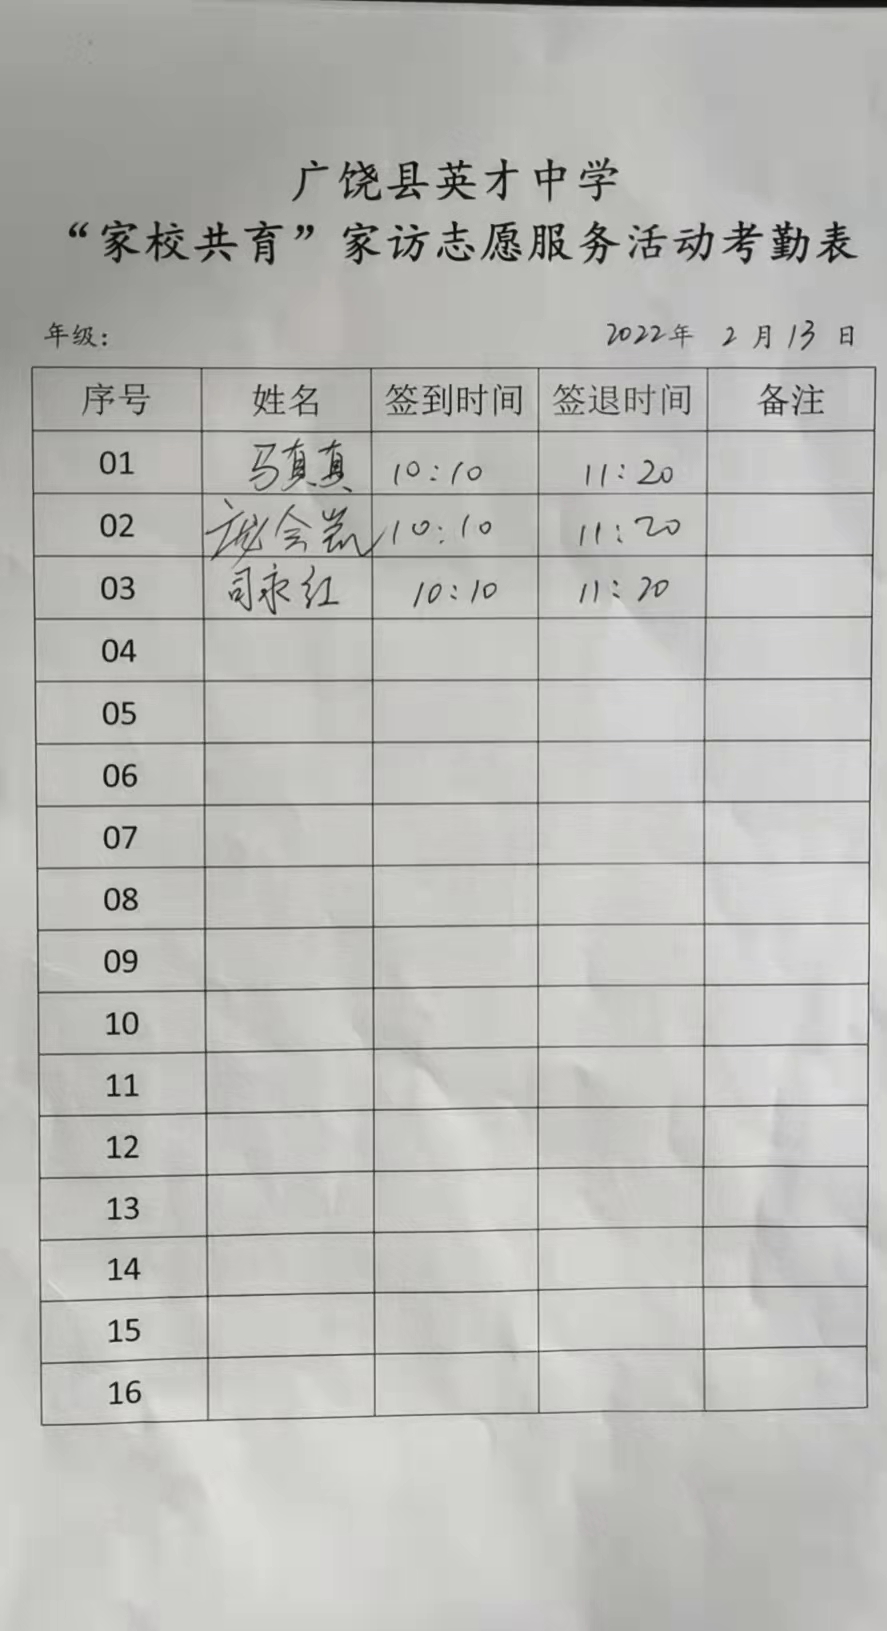 广饶县英才中学
“家校共育”家访志愿服务活动考勤表
年级： 2022年 2月13日
序号 姓名 签到时间 签退时间 备注
01 马真真 10:10 11:20
02 10:10 11:20
03 司永红 10:10 11:20
04
05
06
07
08
09
10
11
12
13
14
15
16